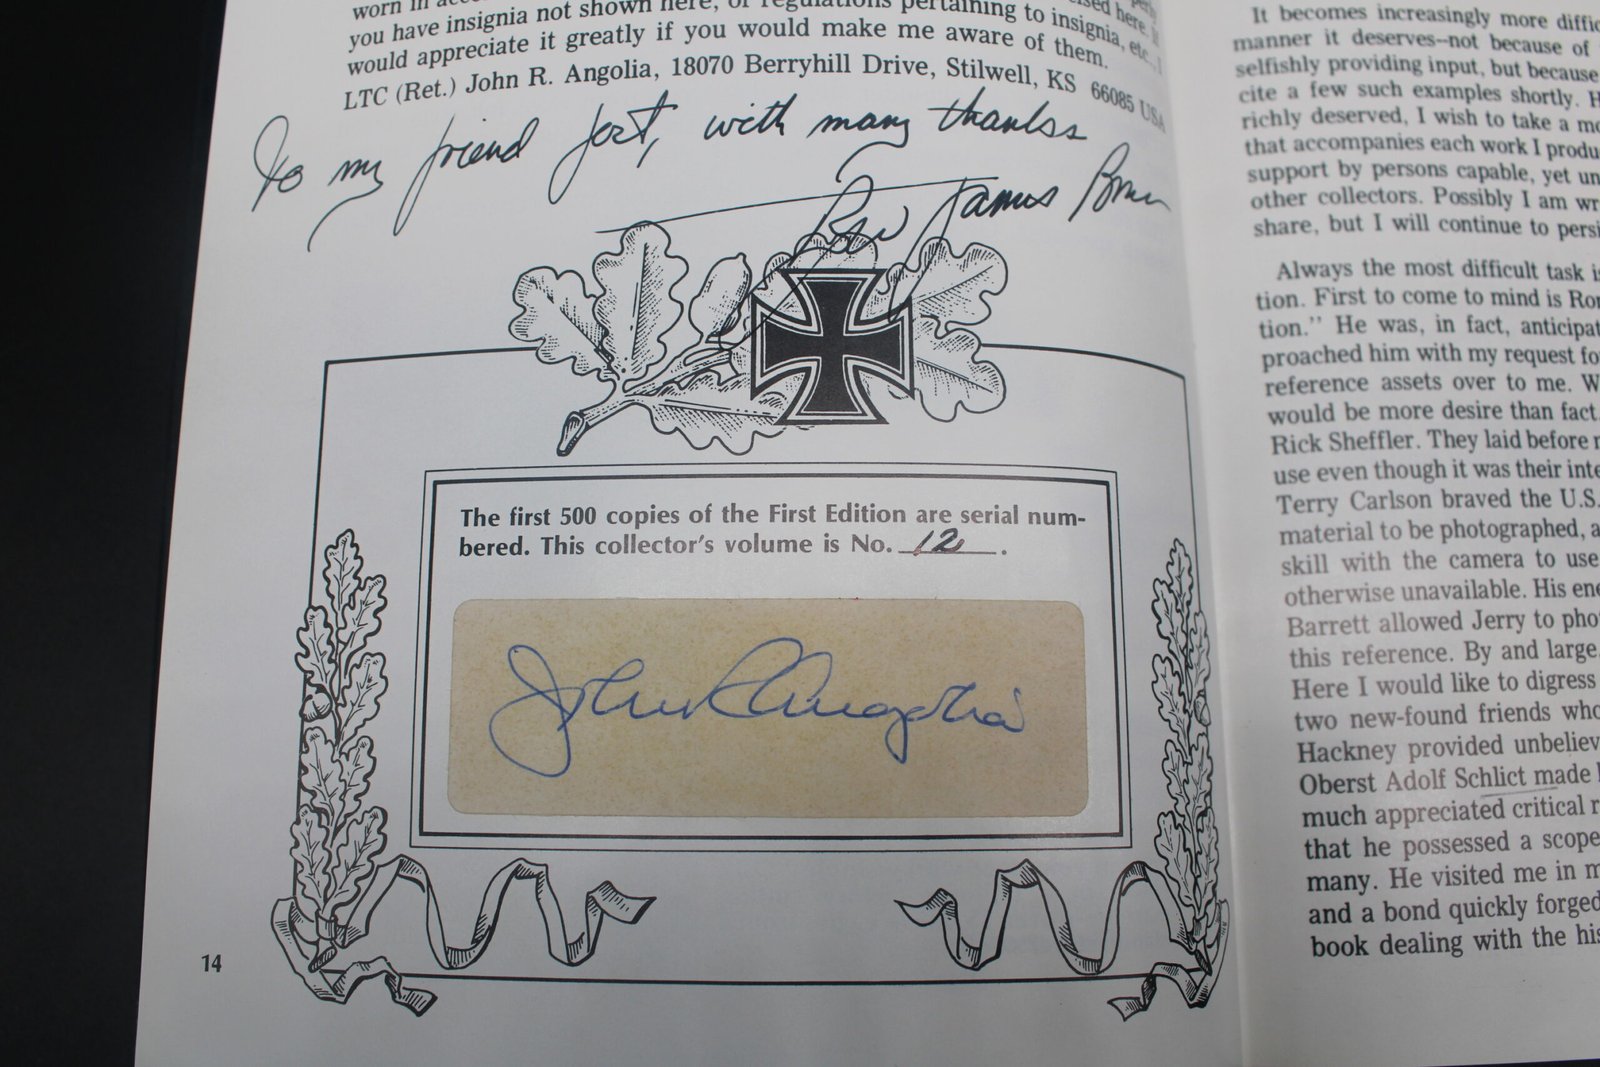 worn in
you have insignia not shown here, or regulations pertaining to insignia, etc., I
would appreciate it greatly if you would make me aware of them.
LTC (Ret.) John R. Angolia, 18070 Berryhill Drive, Stilwell, KS 66085 USA
To my friend Jost, with many thanks
The first 500 copies of the First Edition are serial num-
bered. This collector's volume is No. 12.
John R Angolia
14
It becomes increasingly more
manner it deserves--not because of
selfishly providing input, but because
cite a few such examples shortly.
richly deserved, I wish to take a
that accompanies each work I
support by persons capable, yet
other collectors. Possibly I am
share, but I will continue to
Always the most difficult task
tion. First to come to mind is
tion." He was, in fact,
proached him with my request
reference assets over to me.
would be more desire than fact.
Rick Sheffler. They laid before
use even though it was their
Terry Carlson braved the U.S.
material to be photographed,
skill with the camera to use
otherwise unavailable. His
Barrett allowed Jerry to
this reference. By and large.
Here I would like to digress
two new-found friends
Hackney provided
Oberst Adolf Schlict made
much appreciated critical
that he possessed a scope
many. He visited me in
and a bond quickly forged
book dealing with the